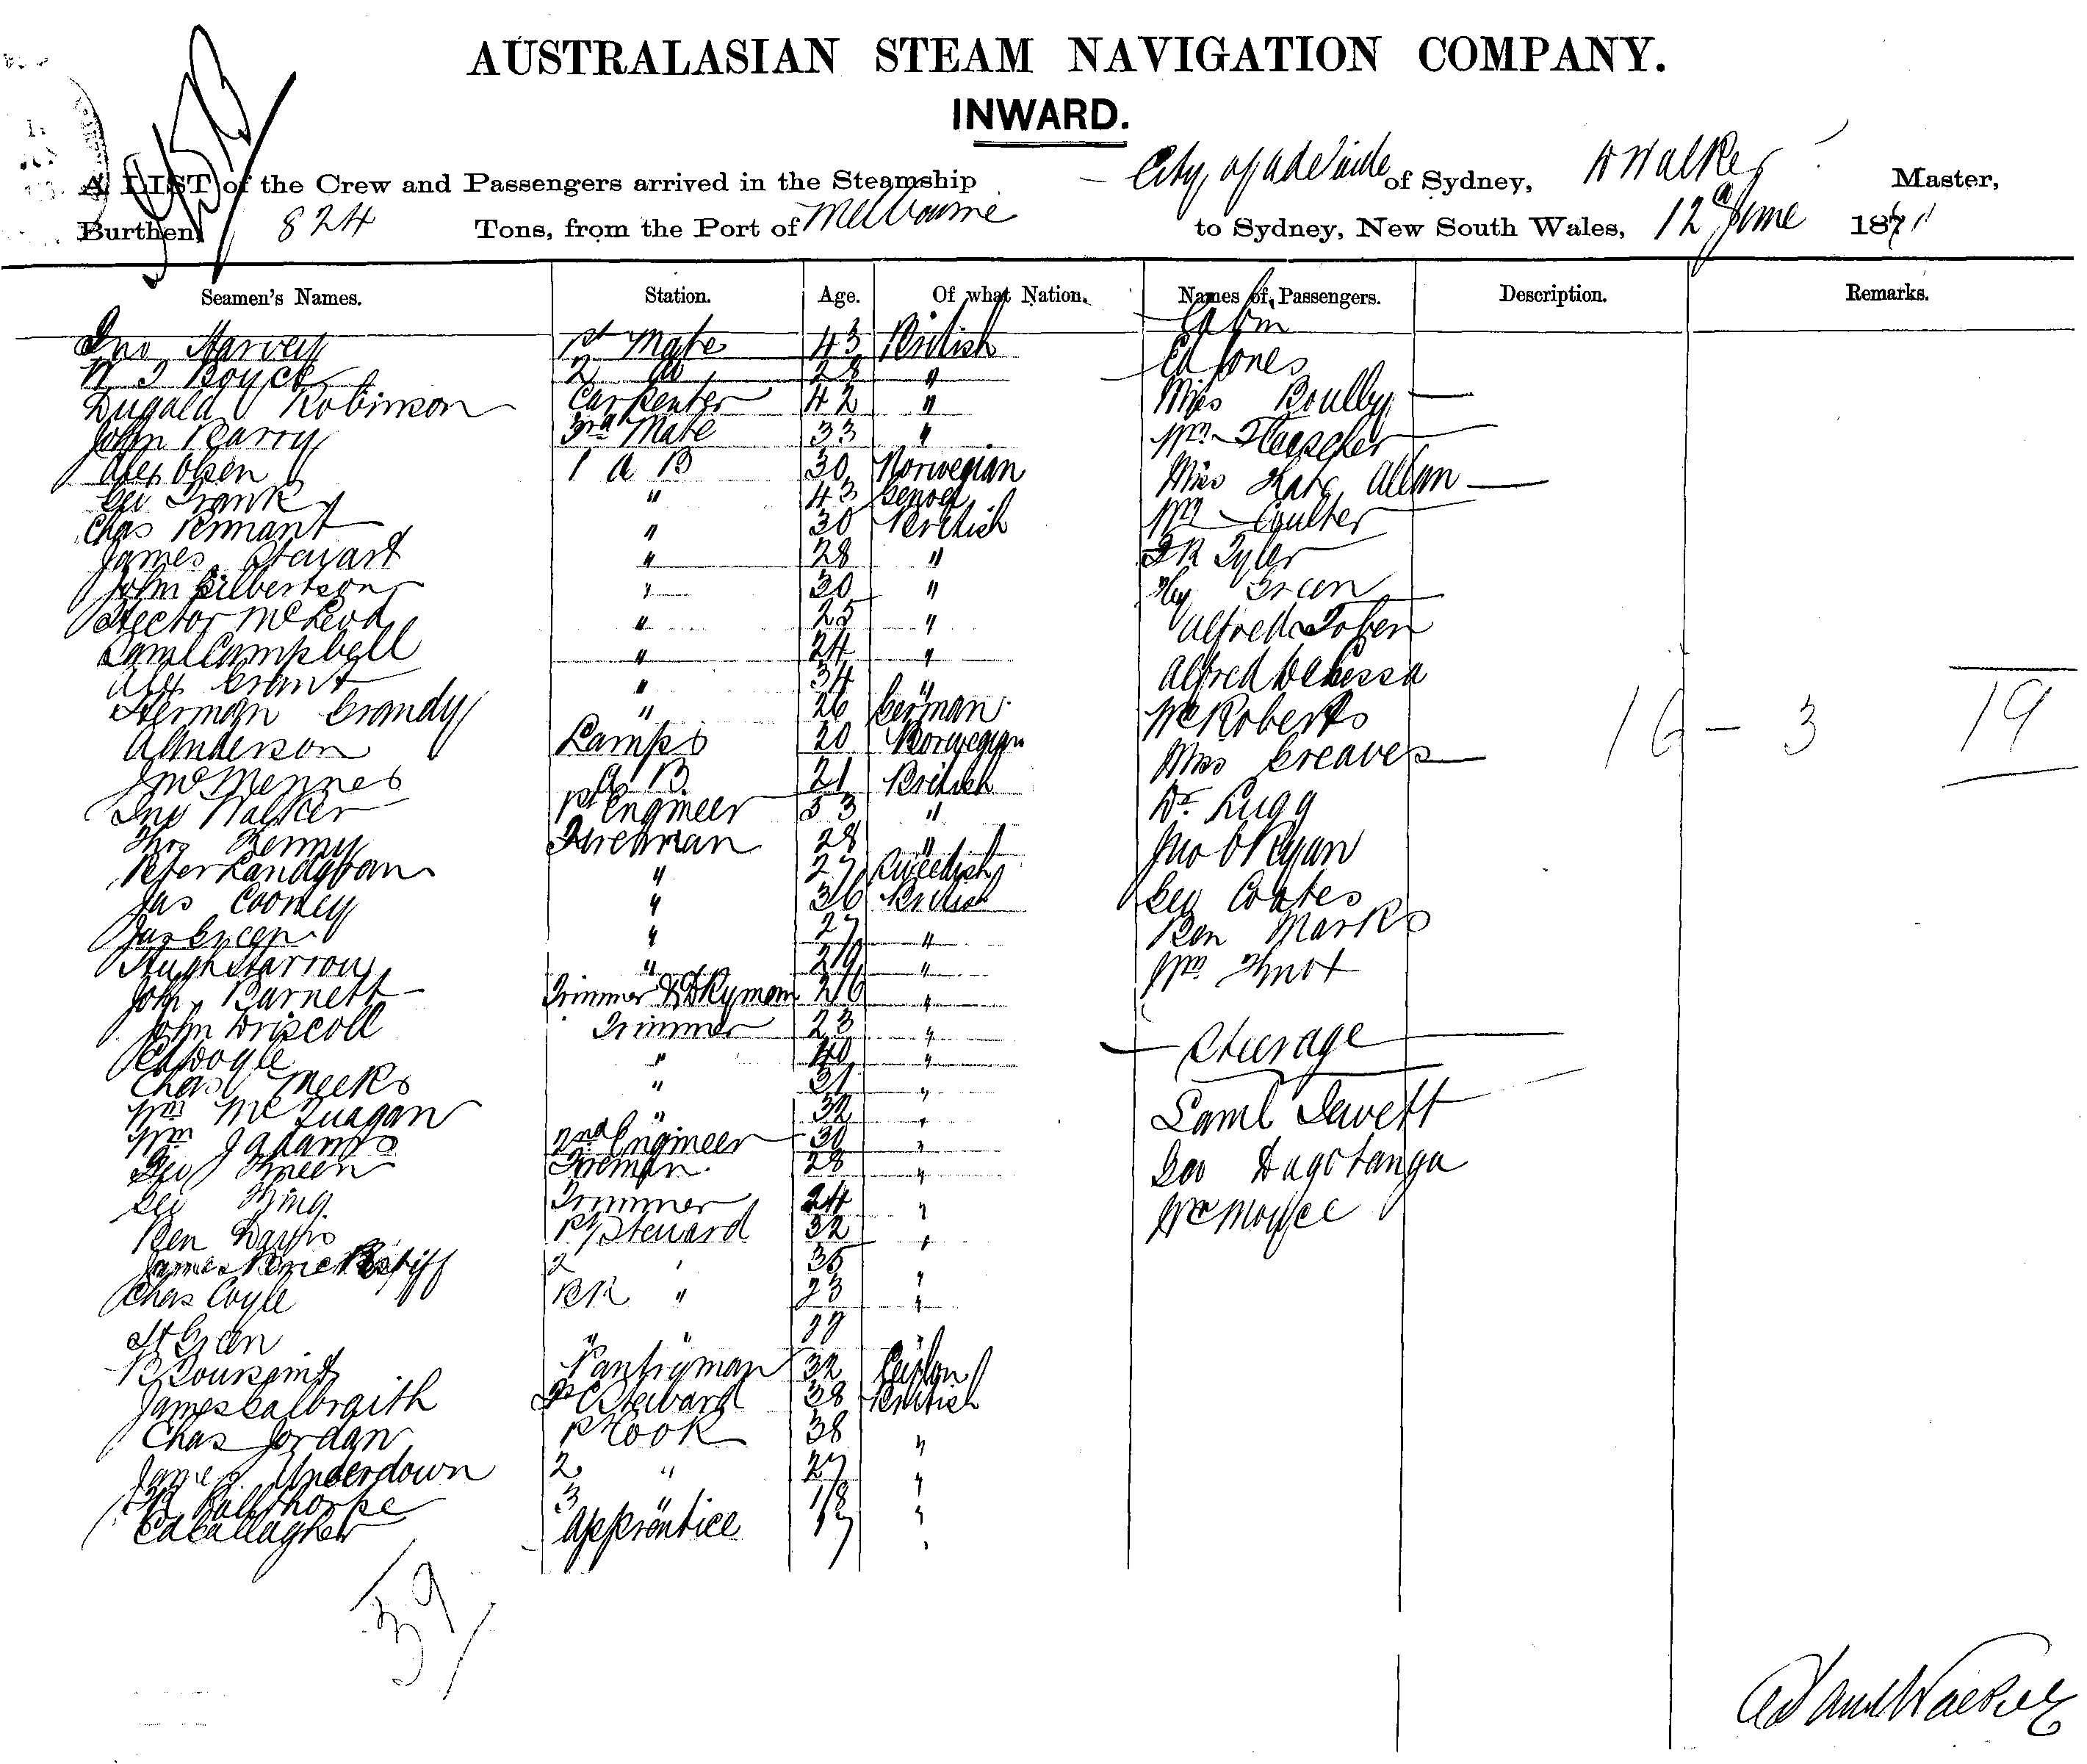 AUSTRALASIAN STEAM NAVIGATION COMPANY.
INWARD.
A LIST of the Crew and Passengers arrived in the Steamship City of Adelaide of Sydney, D Walker Master,
Burthen 824 Tons, from the Port of Melbourne to Sydney, New South Wales, 12th June 1871
Seamen's Names. Station. Age. Of what Nation. Names of Passengers. Description. Remarks.
Cabin
Jno Harvey 1st Mate 43 British Ed Jones
W J Boyck 2 " 28 " Miss Boully
Dugald Robinson Carpenter 42 " Mr
John Barry 3rd Mate 33 " Miss Kate Allan
Alex Olsen 1 A B 30 Norwegian Mr Coulter
Geo Frank " 43 J R Tyler
Chas Pennant " 30 British Hy Green
James Stewart " 28 " Alfred Tober
John Gilbertson " 30 " Alfred
Hector McLeod " 25 " Wm Roberts
Saml Campbell " 24 " Mrs Greaves
Alex Grant " 34 " Dr Lugg
Herman Grandy " 26 German Jno O Ryan
A Anderson Lamps 20 Norwegian Geo Coates
J McMennes A B 21 British Ben Marks
Jno Walker 1st Engineer 53 " Wm Knot
Thos Kenny Fireman 28 "
Peter Landgban " 27 Swedish
Jas Cooney " 36 British
Jas Green " 27 "
Hugh Harrow " 29 "
John Barnett Trimmer & 26 "
John Driscoll Trimmer 23 " Steerage
Ed Doyle " 40 "
Chas Meeks " 31 " Saml Jewett
Wm McGuagan " 32 "
Wm J Adams 2nd Engineer 30 " Geo
Geo Green Fireman 28 "
Geo King Trimmer 24 "
Ben Davis 1st Steward 32 "
James 2 " 35 "
Chas Coyle BR " 23 "
H Green " " "
Pantryman 32 Ceylon
James Galbraith Steward 38 British
Chas Jordan 1st Cook 38 "
James Underdown 2 " 27 "
Ballthorpe 3 " 18 "
Ed Gallagher Apprentice 17 "
16 - 3 19
39
Walker